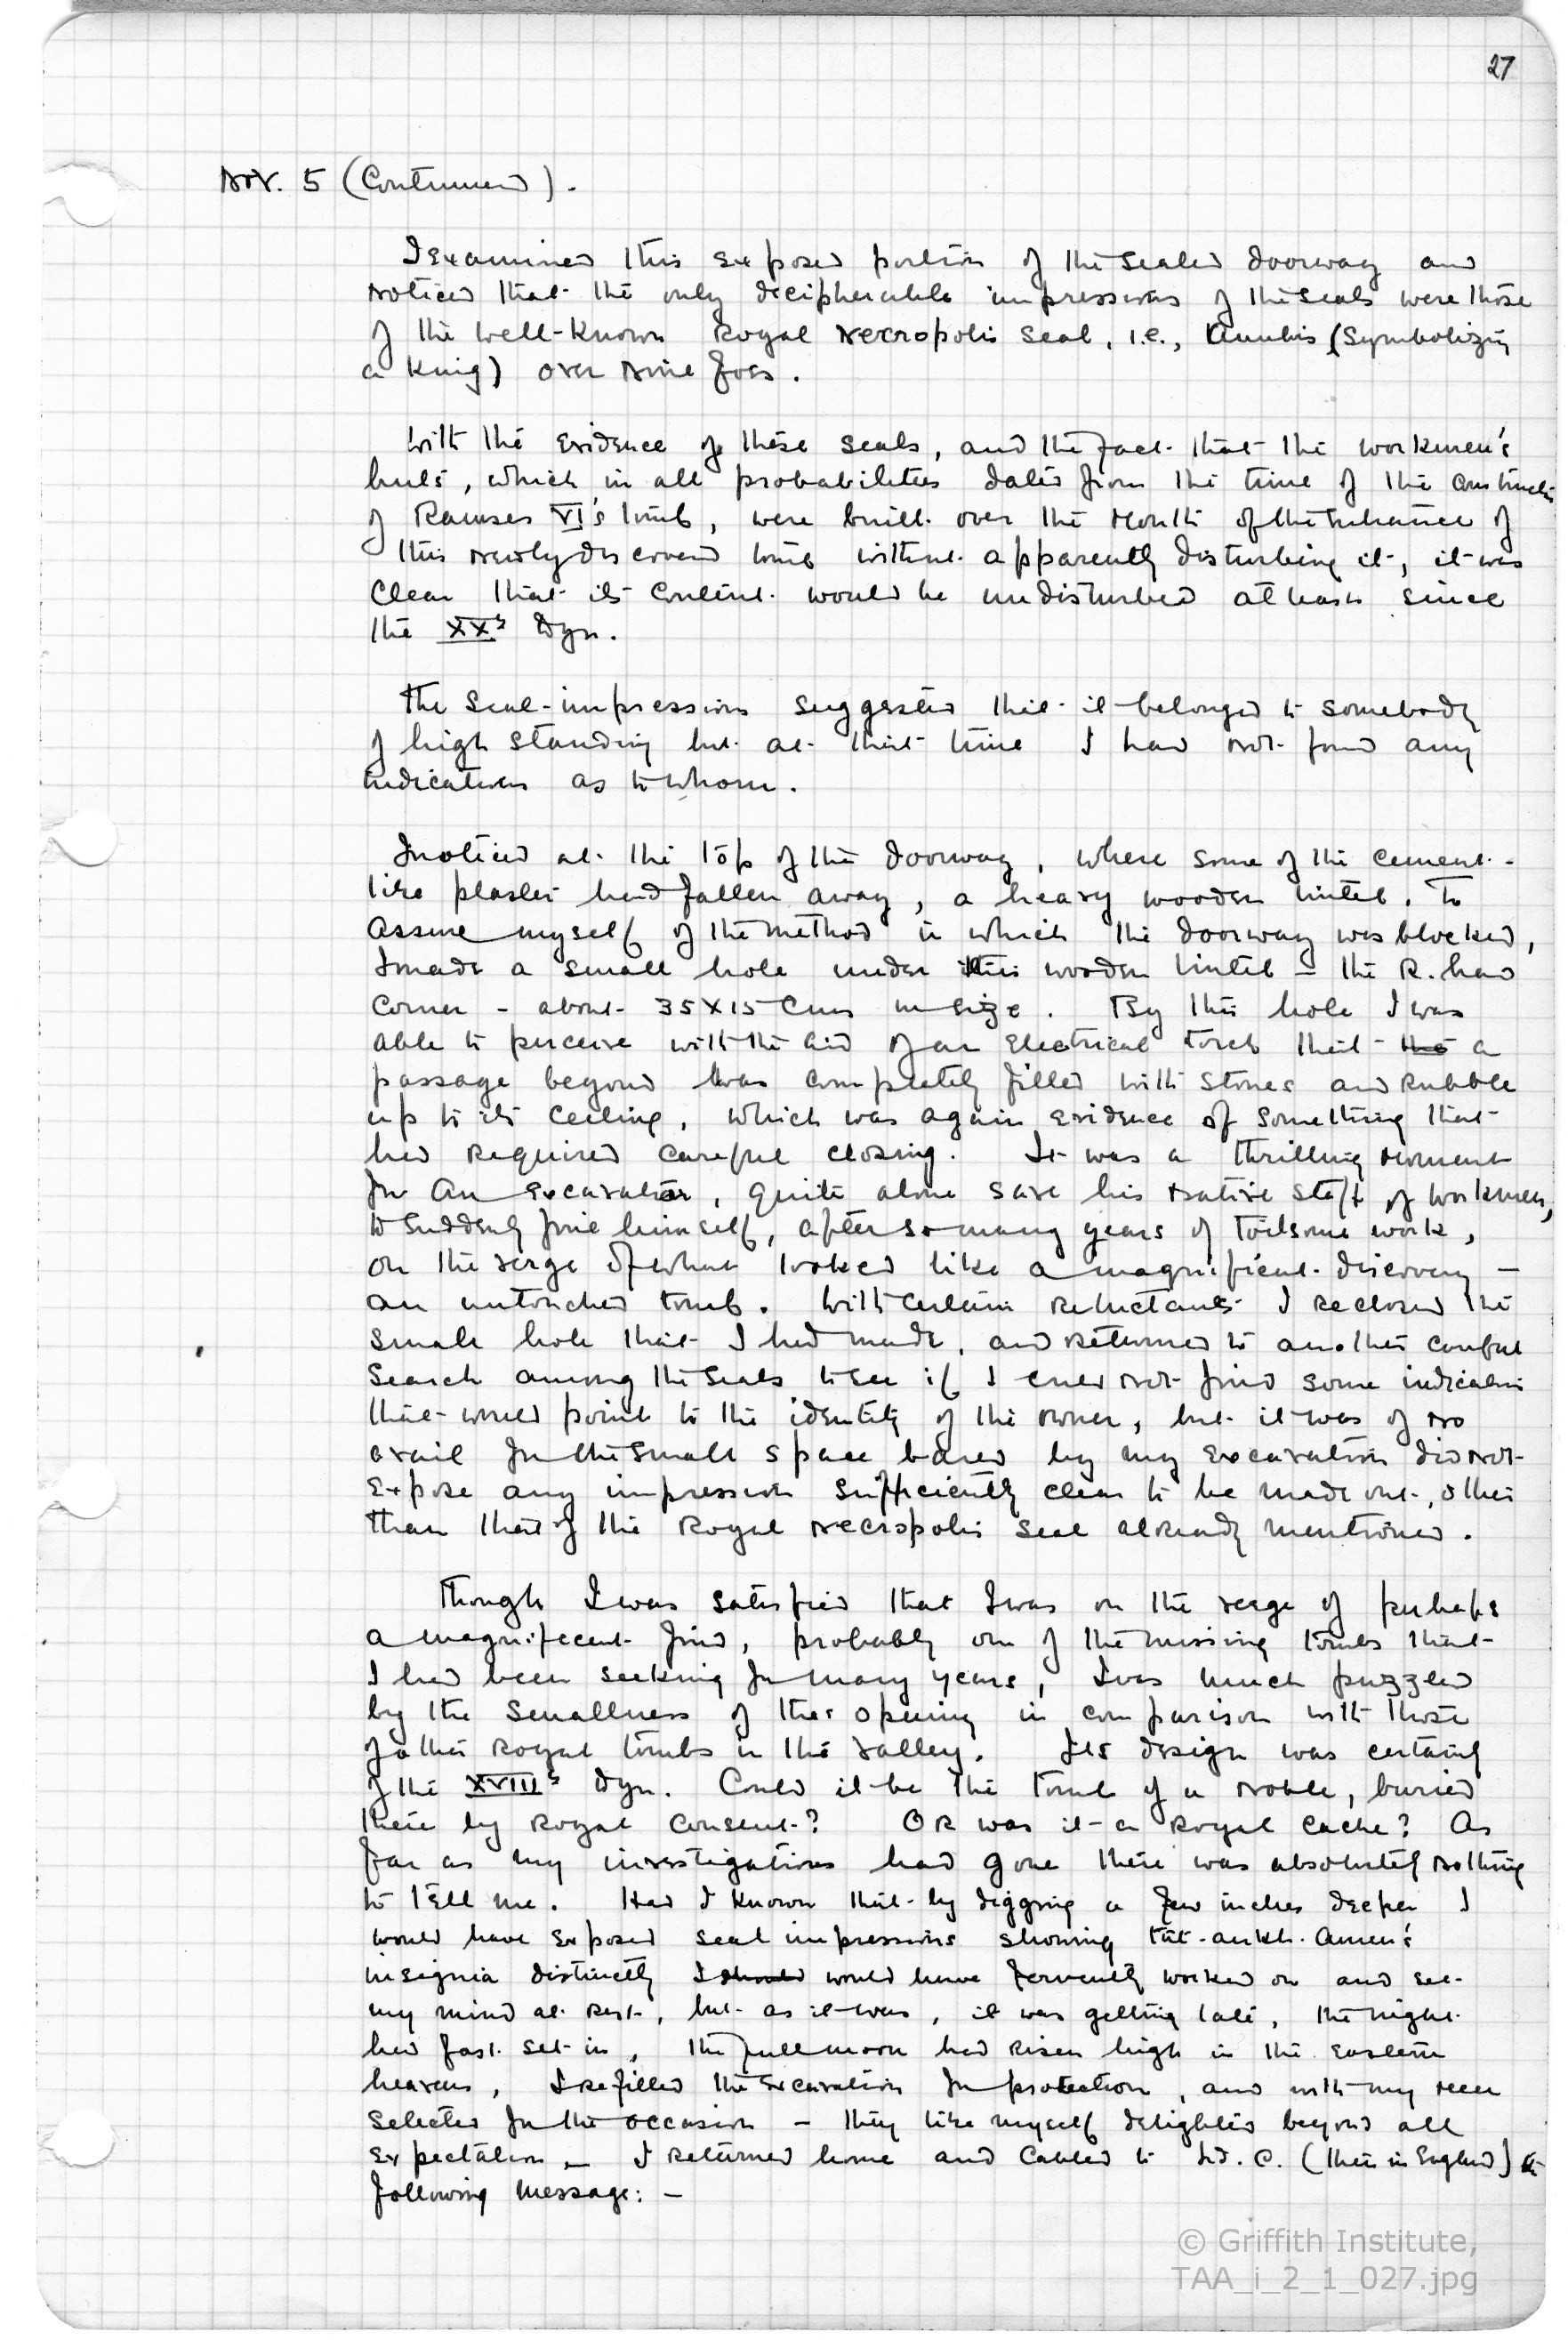 27
Nov. 5 (Continued).
I examined this exposed portion of the sealed doorway and
noticed that the only decipherable impressions of the seals were those
of the well-known Royal Necropolis seal, i.e., Anubis (symbolizing
a King) over nine foes.
With the evidence of these seals, and the fact that the workmen's
huts, which in all probabilities dated from the time of the construction
of Ramses VI's tomb, were built over the mouth of the entrance of
this newly discovered tomb without apparently disturbing it, it was
clear that its content would be undisturbed at least since
the XXth Dyn.
The seal-impressions suggested that it belonged to somebody
of high standing but at that time I had not found any
indications as to whom.
I noticed at the top of the doorway, where some of the cement-
like plaster had fallen away, a heavy wooden lintel. To
assure myself of the method in which the doorway was blocked,
I made a small hole under this wooden lintel – the R. hand
corner – about 35 x 15 cms in size. By this hole I was
able to perceive with the aid of an electrical torch that the a
passage beyond was completely filled with stones and rubble
up to its ceiling, which was again evidence of something that
had required careful closing. It was a thrilling moment
for an excavator, quite alone save his native staff of workmen,
to suddenly find himself, after so many years of toilsome work,
on the verge of what looked like a magnificent discovery –
an untouched tomb. With certain reluctance I reclosed the
small hole that I had made, and returned to another careful
search among the seals to see if I could not find some indication
that would point to the identity of the owner, but it was of no
avail for the small space bared by my excavation did not
expose any impression sufficiently clear to be made out, other
than that of the Royal Necropolis seal already mentioned.
Though I was satisfied that I was on the verge of perhaps
a magnificent find, probably one of the missing tombs that
I had been seeking for many years, I was much puzzled
by the smallness of the opening in comparison with those
of other Royal tombs in the valley. Its design was certainly
of the XVIIIth Dyn. Could it be the tomb of a noble, buried
there by Royal consent? Or was it a Royal cache? As
far as my investigations had gone there was absolutely nothing
to tell me. Had I known that by digging a few inches deeper I
would have exposed seal impressions showing Tut.ankh.Amen's
insignia distinctly I should would have fervently worked on and set
my mind at rest, but as it was, it was getting late, the night
had fast set in, the full moon had risen high in the eastern
heavens, I refilled the excavation for protection, and with my men
selected for the occasion – they like myself delighted beyond all
expectation – I returned home and cabled to Ld. C. (then in England) the
following message: –
© Griffith Institute,
TAA_i_2_1_027.jpg